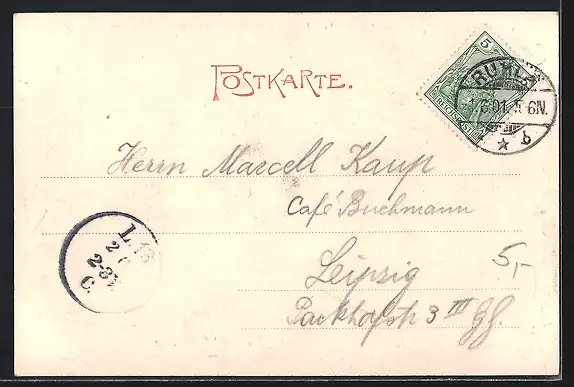 POSTKARTE.
5
RUHLA
1.6.01. 5-6N.
* b
Herrn Marcell Kaup
Café Buchmann
Leipzig
5,-
Packhofstr 3 III
L.
2
C.